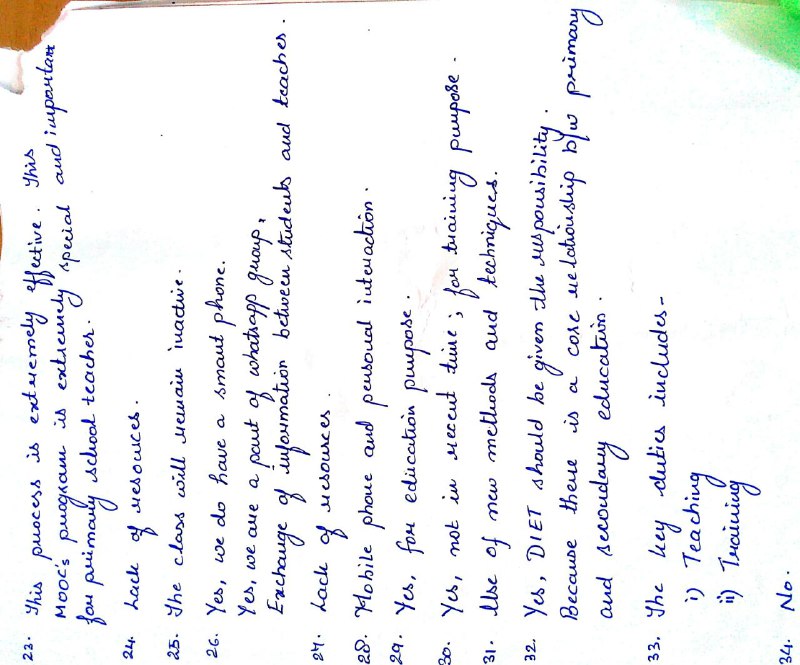 23. This process is extremely effective. This
MOOC's program is extremely special and important
for primary school teacher.
24. Lack of resources.
25. The class will remain inactive.
26. Yes, we do have a smart phone.
Yes, we are a part of whatsapp group,
Exchange of information between students and teaches.
27. Lack of resources.
28. Mobile phone and personal interaction.
29. Yes, for education purpose.
30. Yes, not in recent time; for training purpose.
31. Use of new methods and techniques.
32. Yes, DIET should be given the responsibility.
Because there is a core relationship b/w primary
and secondary education.
33. The key duties includes-
i) Teaching
ii) Training
34. No.